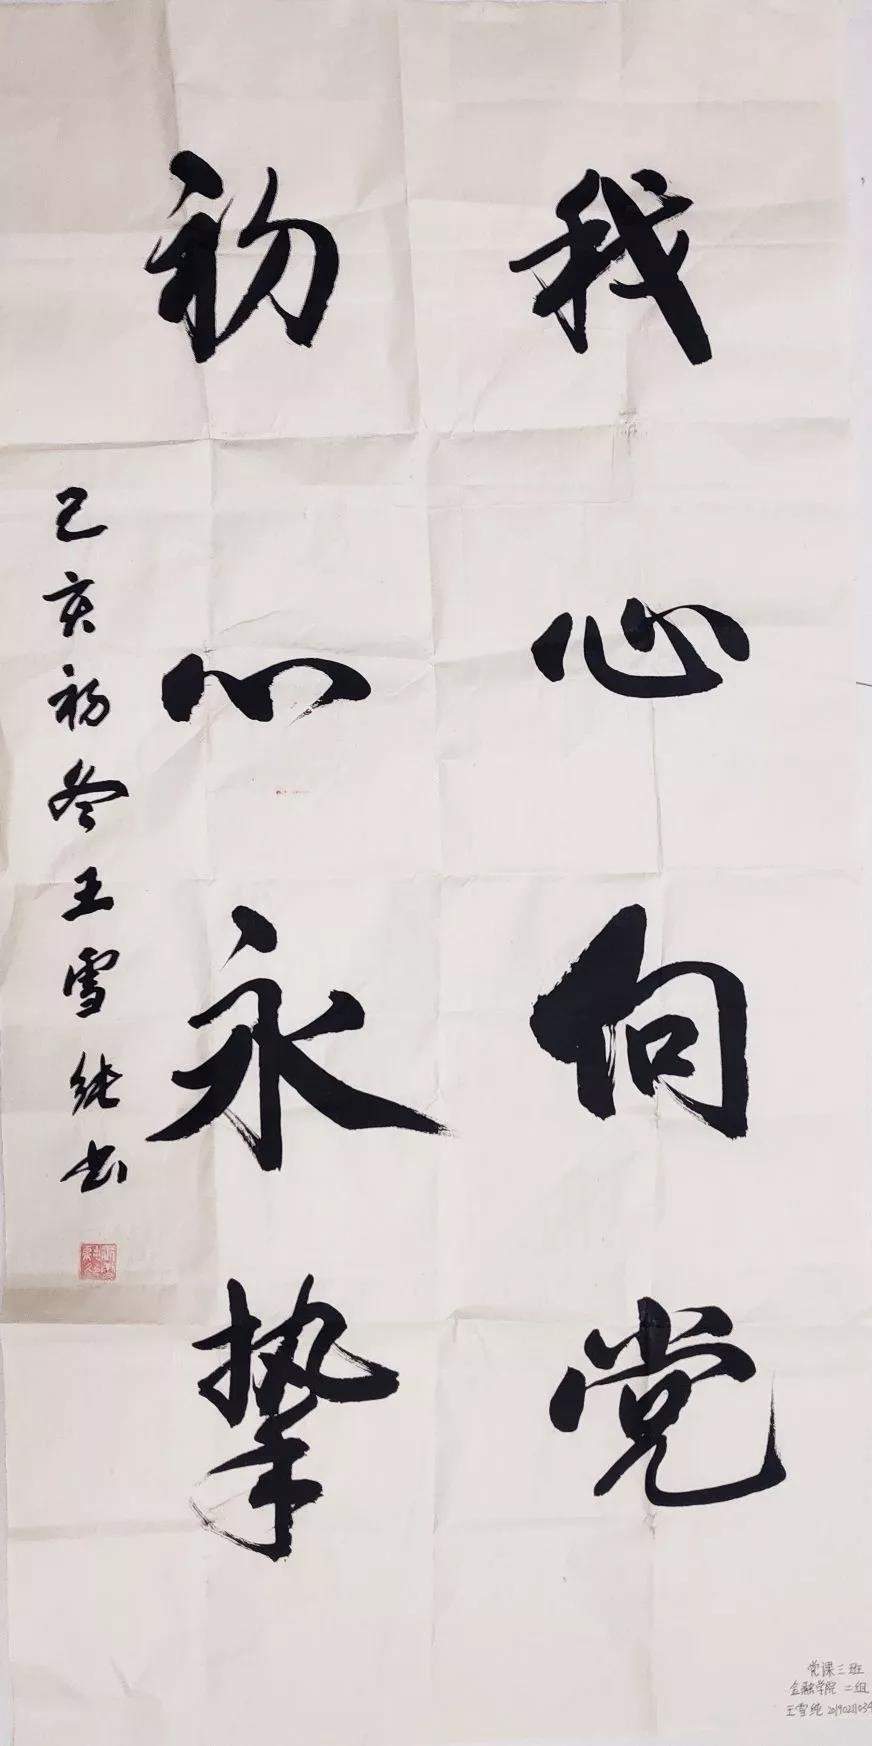 我心向党
初心永挚
己亥初冬王雪纯书
党课三班
金融学院 二组
王雪纯